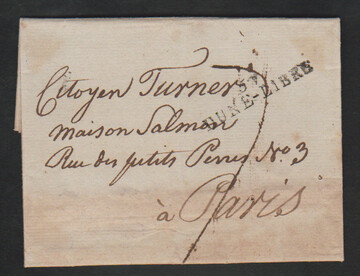 Citoyen Turner
57
DUNE-LIBRE
maison Salmon
Rue des petits Peres No. 3
à Paris